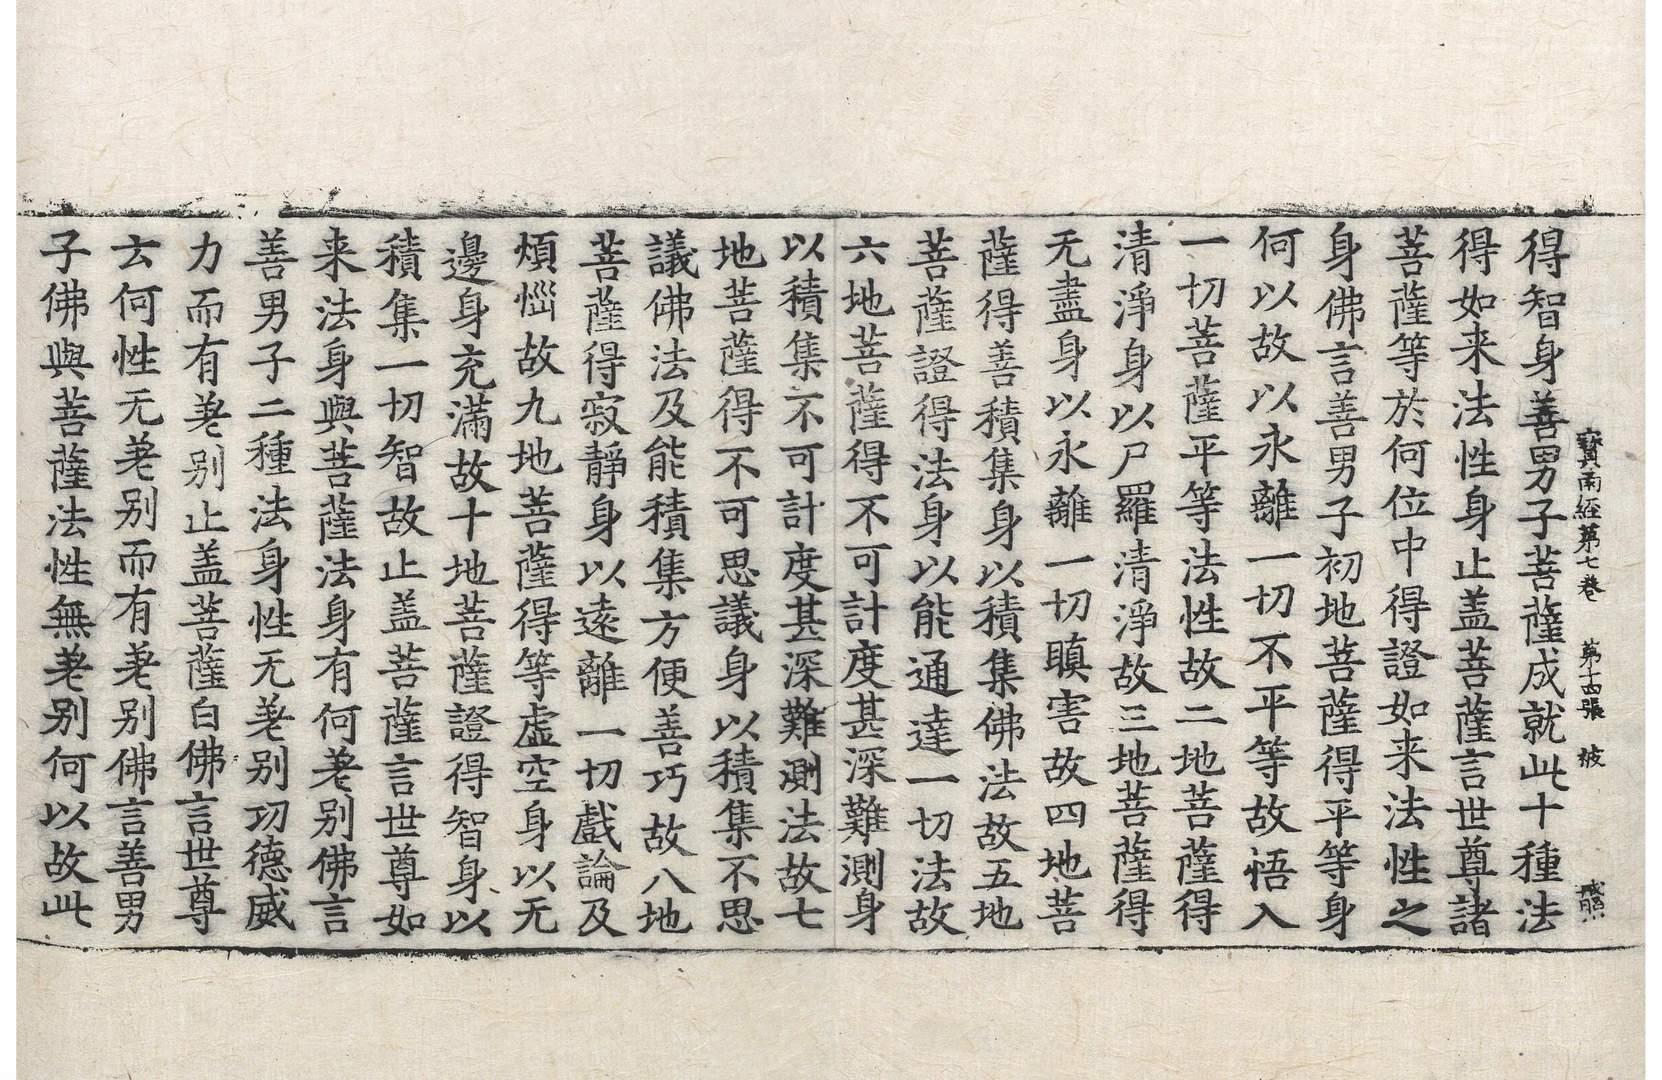 寶雨經第七卷 第十四張 彼
得智身善男子菩薩成就此十種法
得如来法性身止盖菩薩言世尊諸
菩薩等於何位中得證如来法性之
身佛言善男子初地菩薩得平等身
何以故以永離一切不平等故悟入
一切菩薩平等法性故二地菩薩得
清淨身以尸羅清淨故三地菩薩得
无盡身以永離一切瞋害故四地菩
薩得善積集身以積集佛法故五地
菩薩證得法身以能通達一切法故
六地菩薩得不可計度甚深難測身
以積集不可計度甚深難測法故七
地菩薩得不可思議身以積集不思
議佛法及能積集方便善巧故八地
菩薩得寂靜身以遠離一切戲論及
煩惱故九地菩薩得等虛空身以无
邊身充滿故十地菩薩證得智身以
積集一切智故止盖菩薩言世尊如
来法身與菩薩法身有何差别佛言
善男子二種法身性无差别功德威
力而有差别止盖菩薩白佛言世尊
云何性无差别而有差别佛言善男
子佛與菩薩法性無差别何以故此